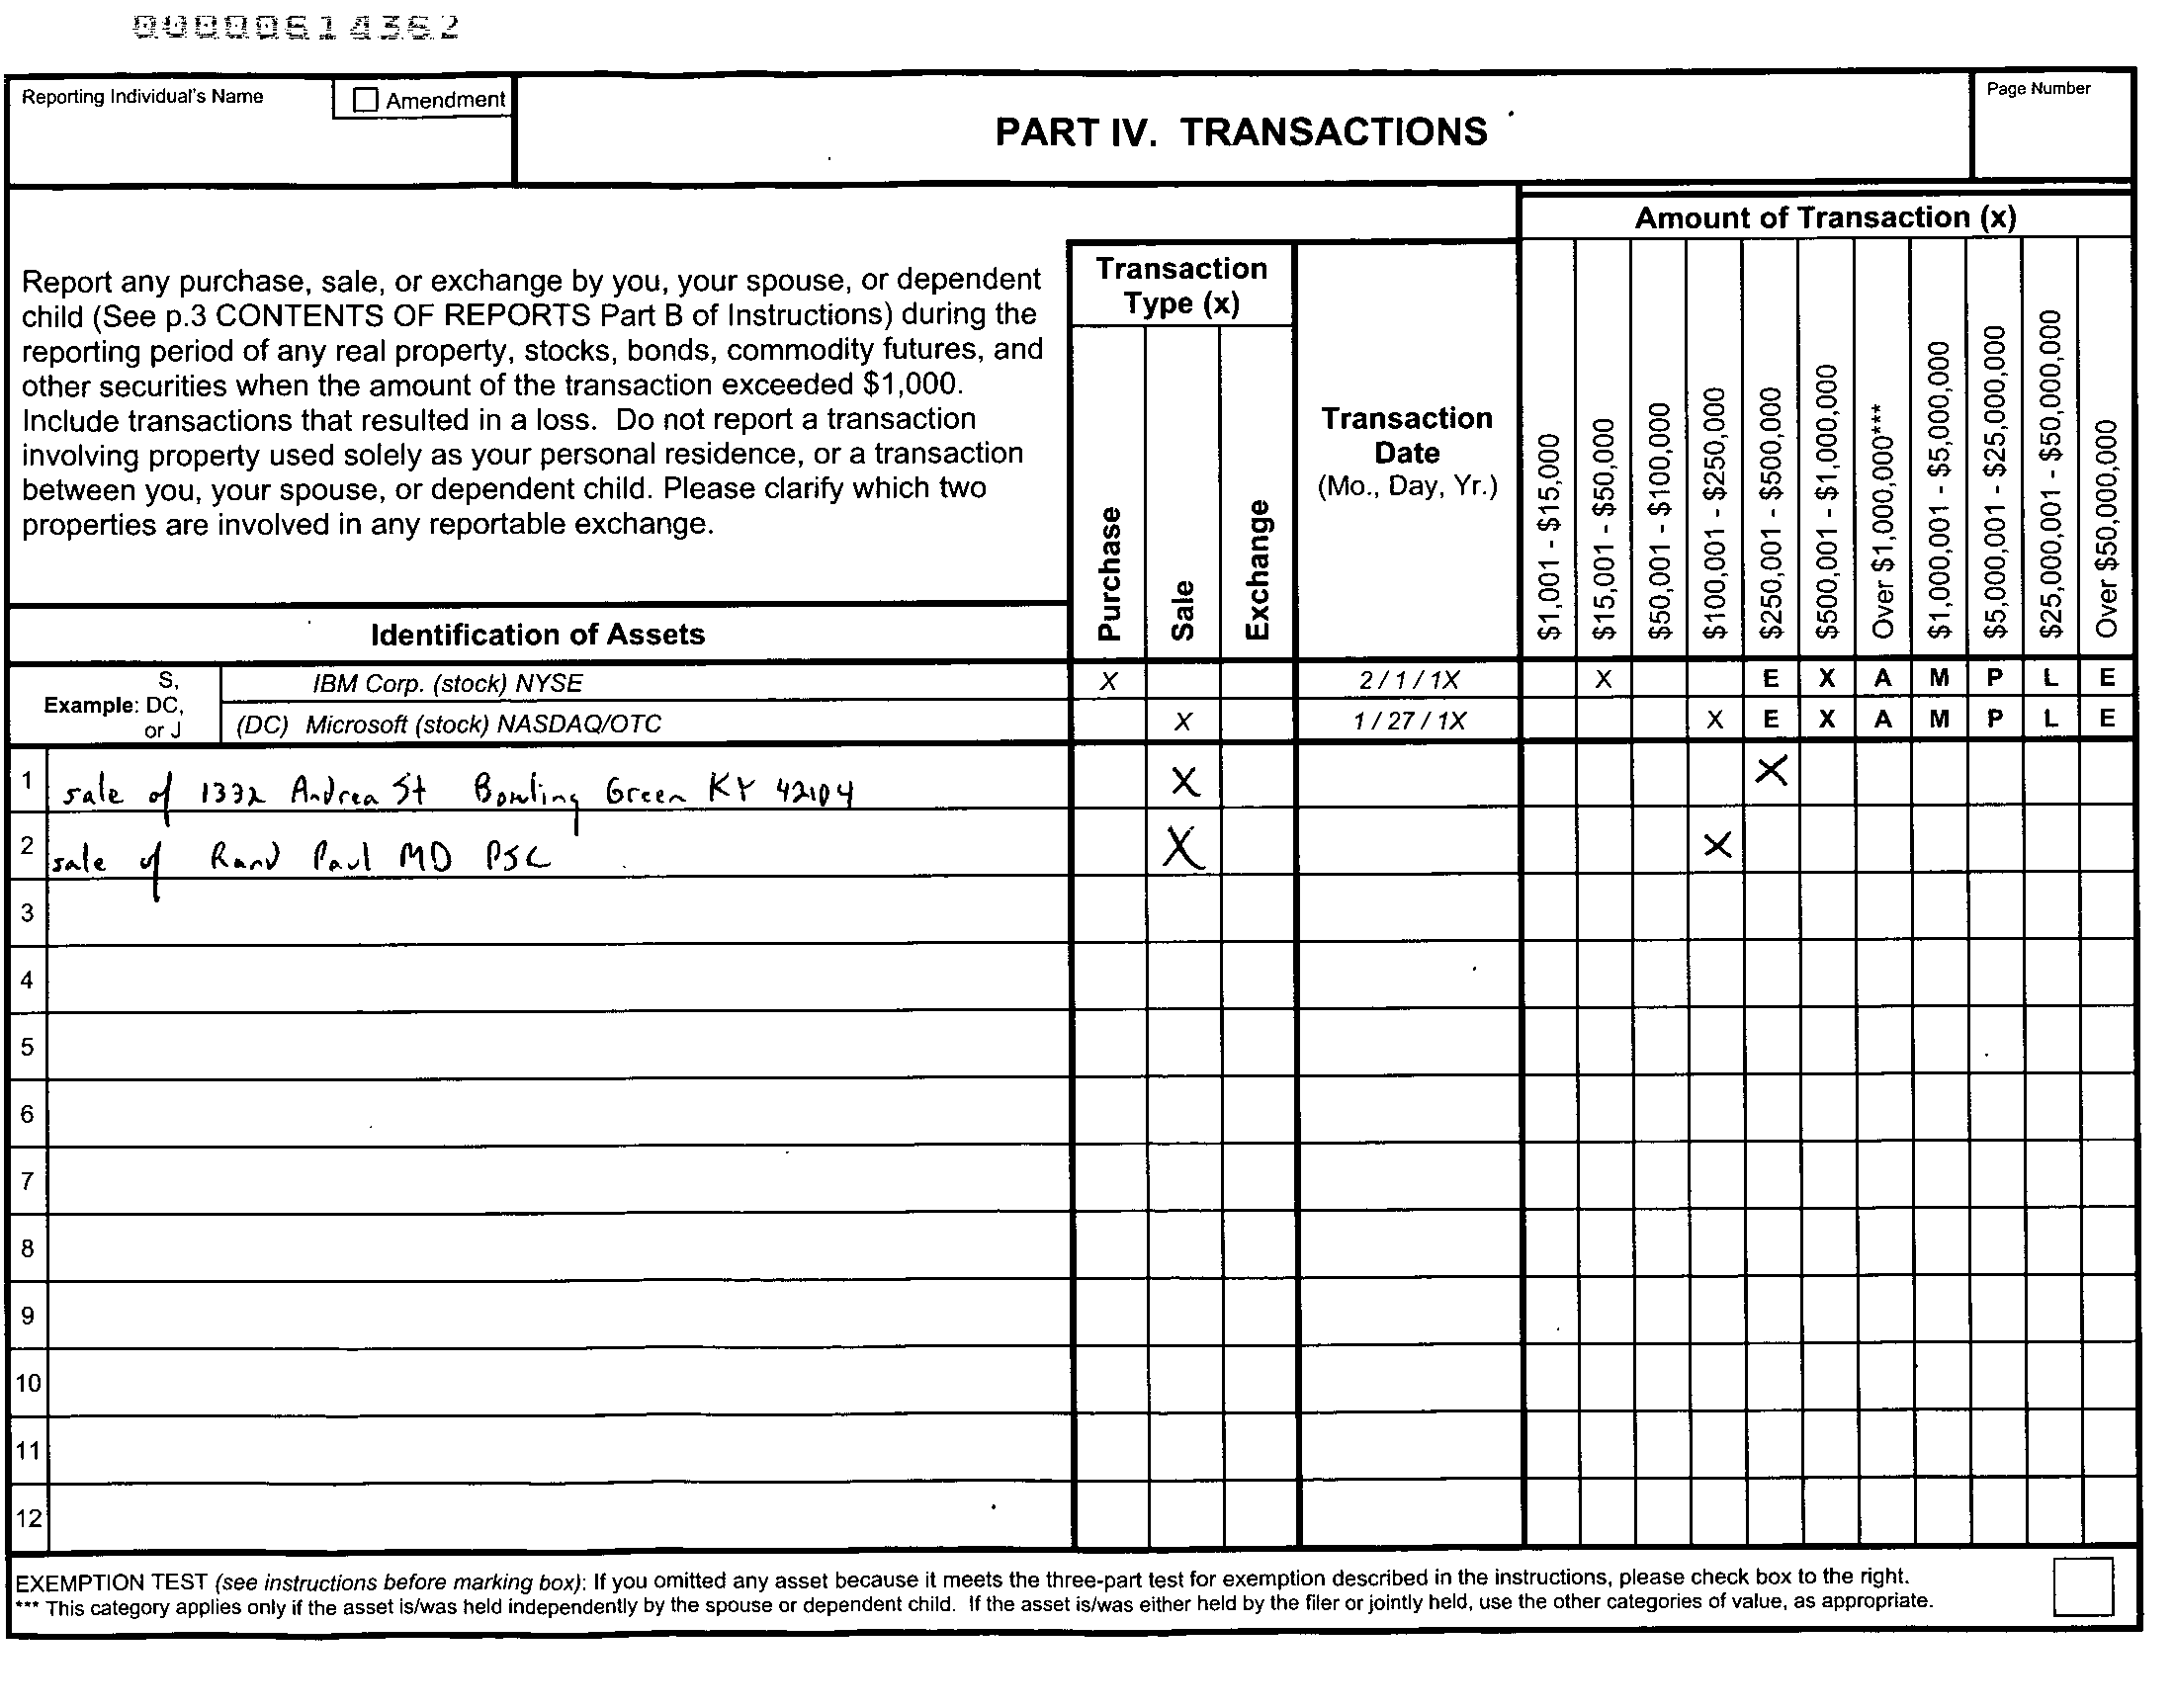 00000614362
Reporting Individual's Name
Amendment
PART IV. TRANSACTIONS
Page Number
Report any purchase, sale, or exchange by you, your spouse, or dependent
child (See p.3 CONTENTS OF REPORTS Part B of Instructions) during the
reporting period of any real property, stocks, bonds, commodity futures, and
other securities when the amount of the transaction exceeded $1,000.
Include transactions that resulted in a loss. Do not report a transaction
involving property used solely as your personal residence, or a transaction
between you, your spouse, or dependent child. Please clarify which two
properties are involved in any reportable exchange.
Identification of Assets
Transaction
Type (x)
Purchase
Sale
Exchange
Transaction
Date
(Mo., Day, Yr.)
Amount of Transaction (x)
$1,001 - $15,000
$15,001 - $50,000
$50,001 - $100,000
$100,001 - $250,000
$250,001 - $500,000
$500,001 - $1,000,000
Over $1,000,000***
$1,000,001 - $5,000,000
$5,000,001 - $25,000,000
$25,000,001 - $50,000,000
Over $50,000,000
Example: S, DC, or J
IBM Corp. (stock) NYSE X 2 / 1 / 1X X E X A M P L E
(DC) Microsoft (stock) NASDAQ/OTC X 1 / 27 / 1X X E X A M P L E
1 sale of 1332 Andrea St Bowling Green KY 42104 X X
2 sale of Rand Paul MD PSC X X
3
4
5
6
7
8
9
10
11
12
EXEMPTION TEST (see instructions before marking box): If you omitted any asset because it meets the three-part test for exemption described in the instructions, please check box to the right.
*** This category applies only if the asset is/was held independently by the spouse or dependent child. If the asset is/was either held by the filer or jointly held, use the other categories of value, as appropriate.